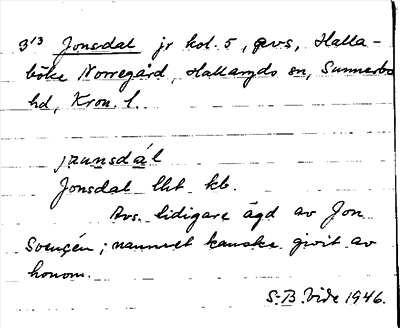 3¹³ Jonsdal jr kol. 5, avs, Halla-
böke Norregård, Hallaryds sn, Sunnerbo
hd, Kron. l.
jɷunsdál
Jonsdal lht kb.
Avs. tidigare ägd av Jon
Svensén; namnet kanske givit av
honom.
S-B. Vide 1946.